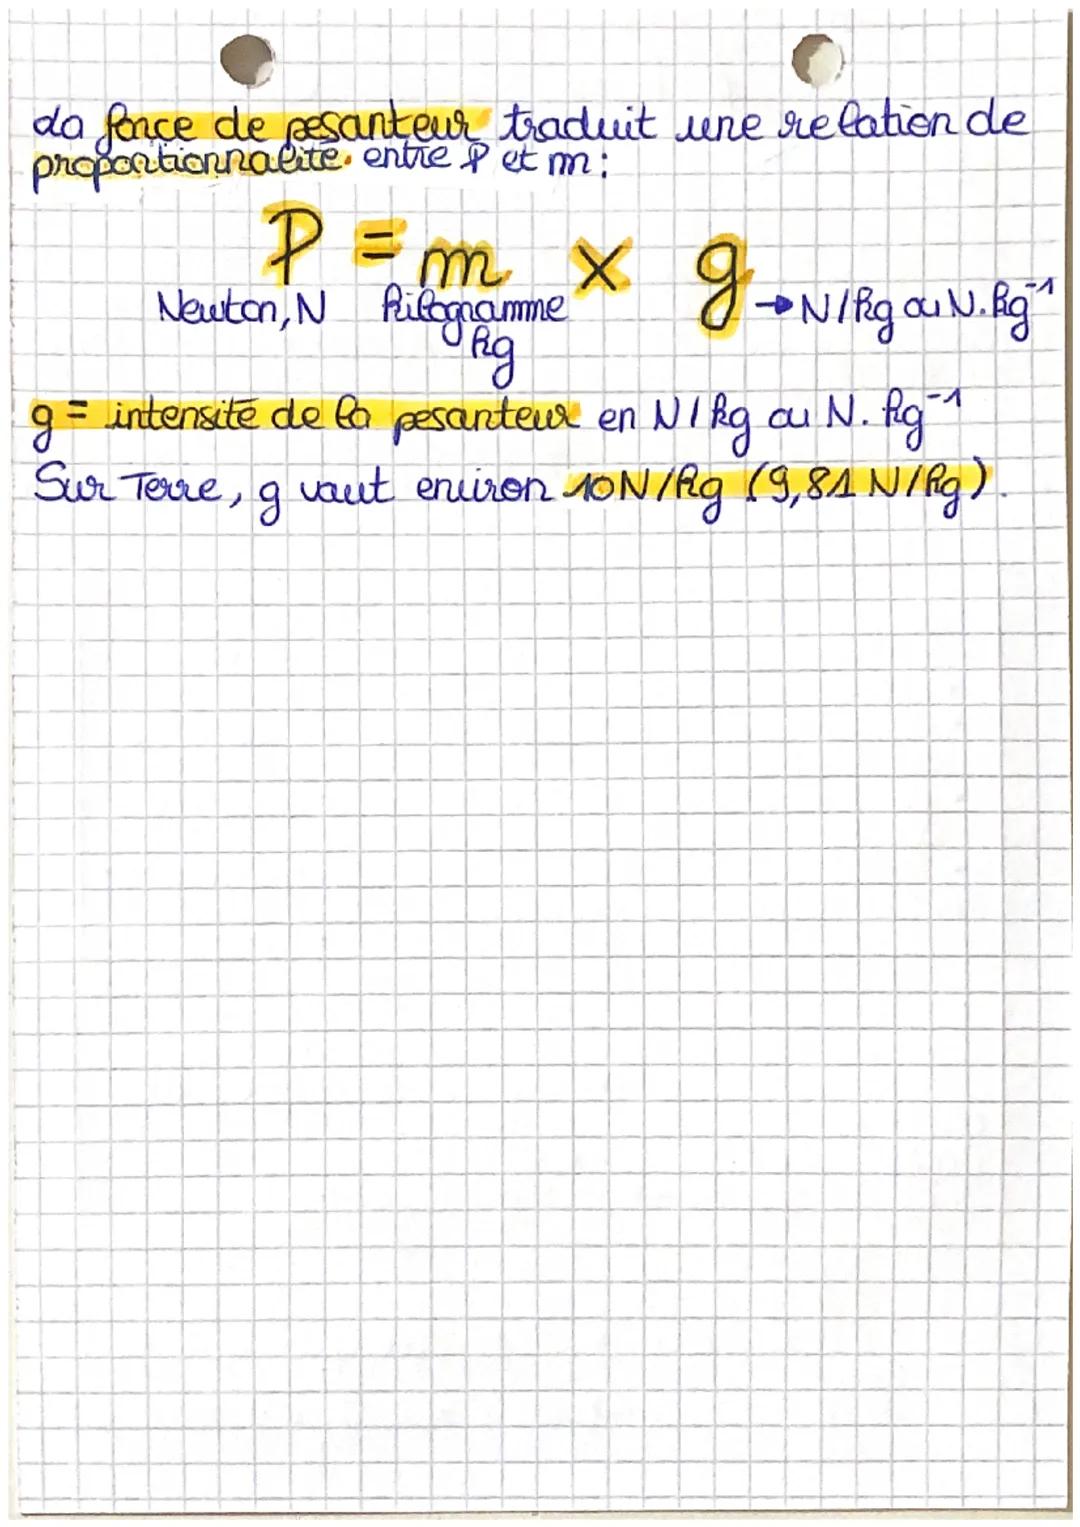 La force de pesanteur traduit une relation de
proportionnalité entre P et m :
P = m × g
Newton, N kilogramme → N/kg ou N.kg⁻¹
kg
g = intensité de la pesanteur en N/kg ou N.kg⁻¹
Sur Terre, g vaut environ 10 N/kg (9,81 N/kg).